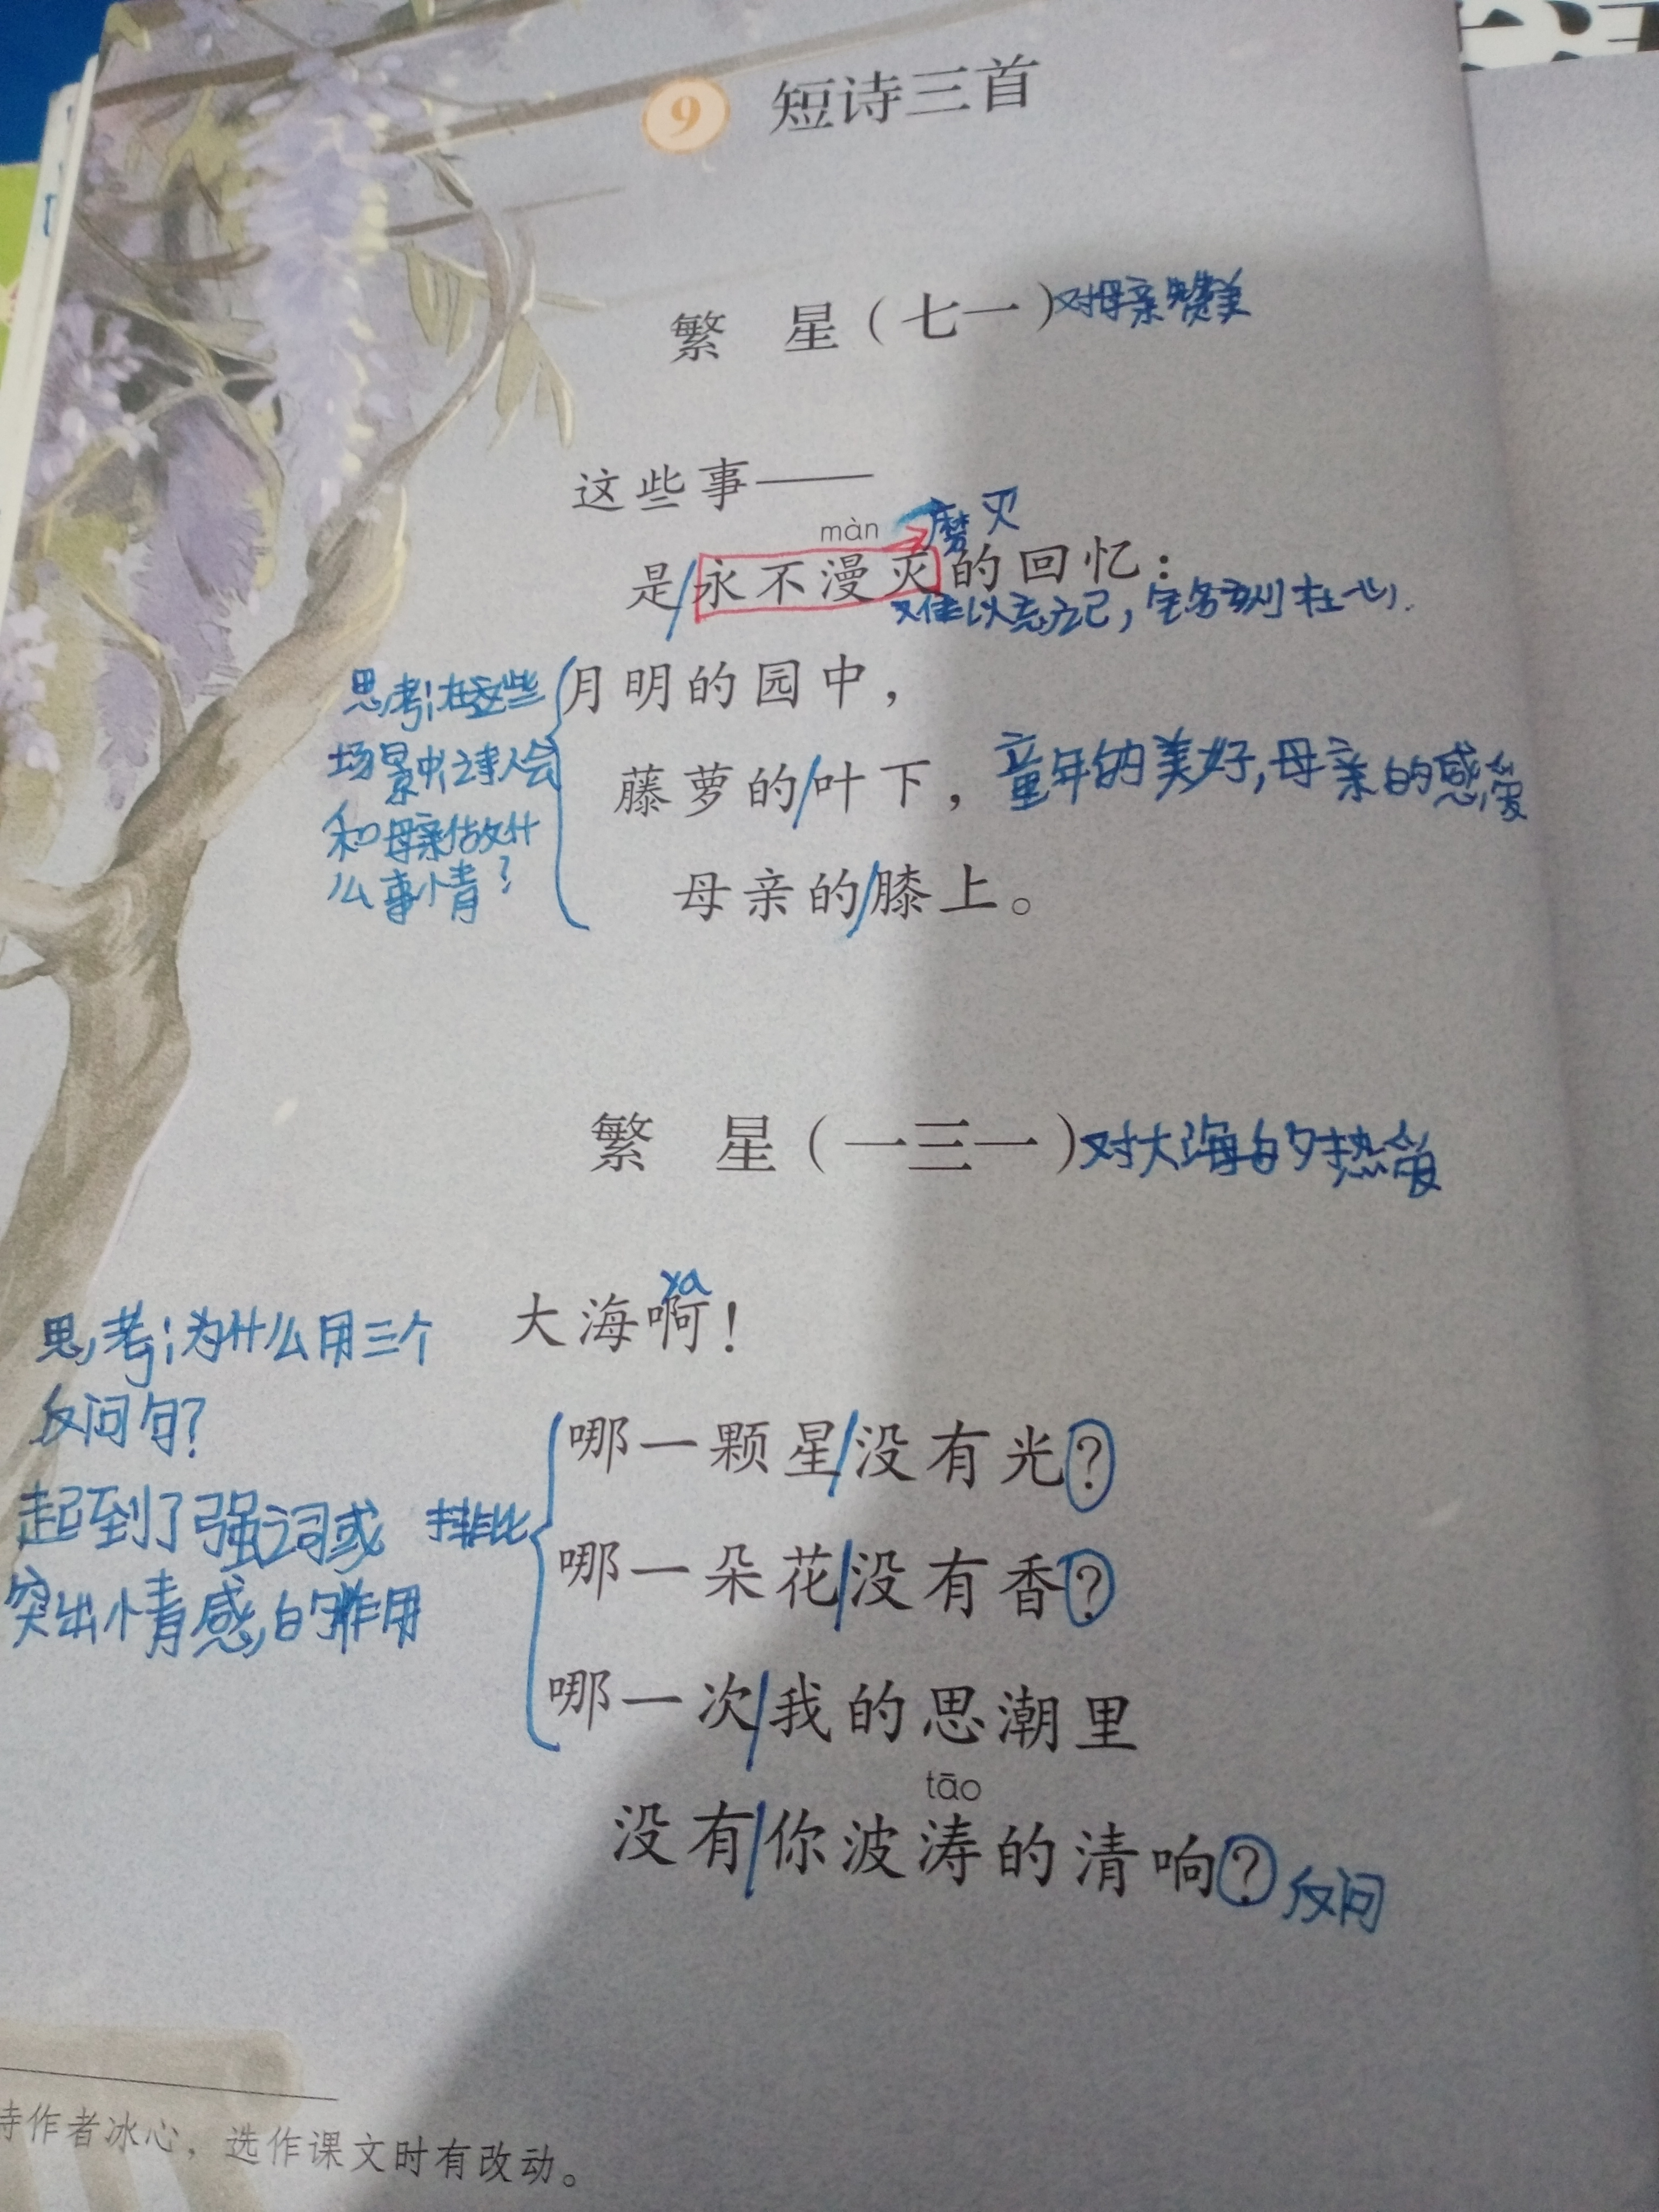 9 短诗三首
繁 星（七一）对母亲赞美
这些事——
màn 磨灭
是/永不漫灭的回忆：
难以忘记，铭刻在心.
思考：在这些 月明的园中，
场景中诗人会 藤萝的/叶下， 童年的美好,母亲的感爱
和母亲做什
么事情？ 母亲的/膝上。
繁 星（一三一）对大海的热爱
ya
思考：为什么用三个 大海啊！
反问句？ 哪一颗星/没有光？
起到了强词或 排比
突出情感的作用 哪一朵花/没有香？
哪一次/我的思潮里
tāo
没有/你波涛的清响？ 反问
诗作者冰心，选作课文时有改动。